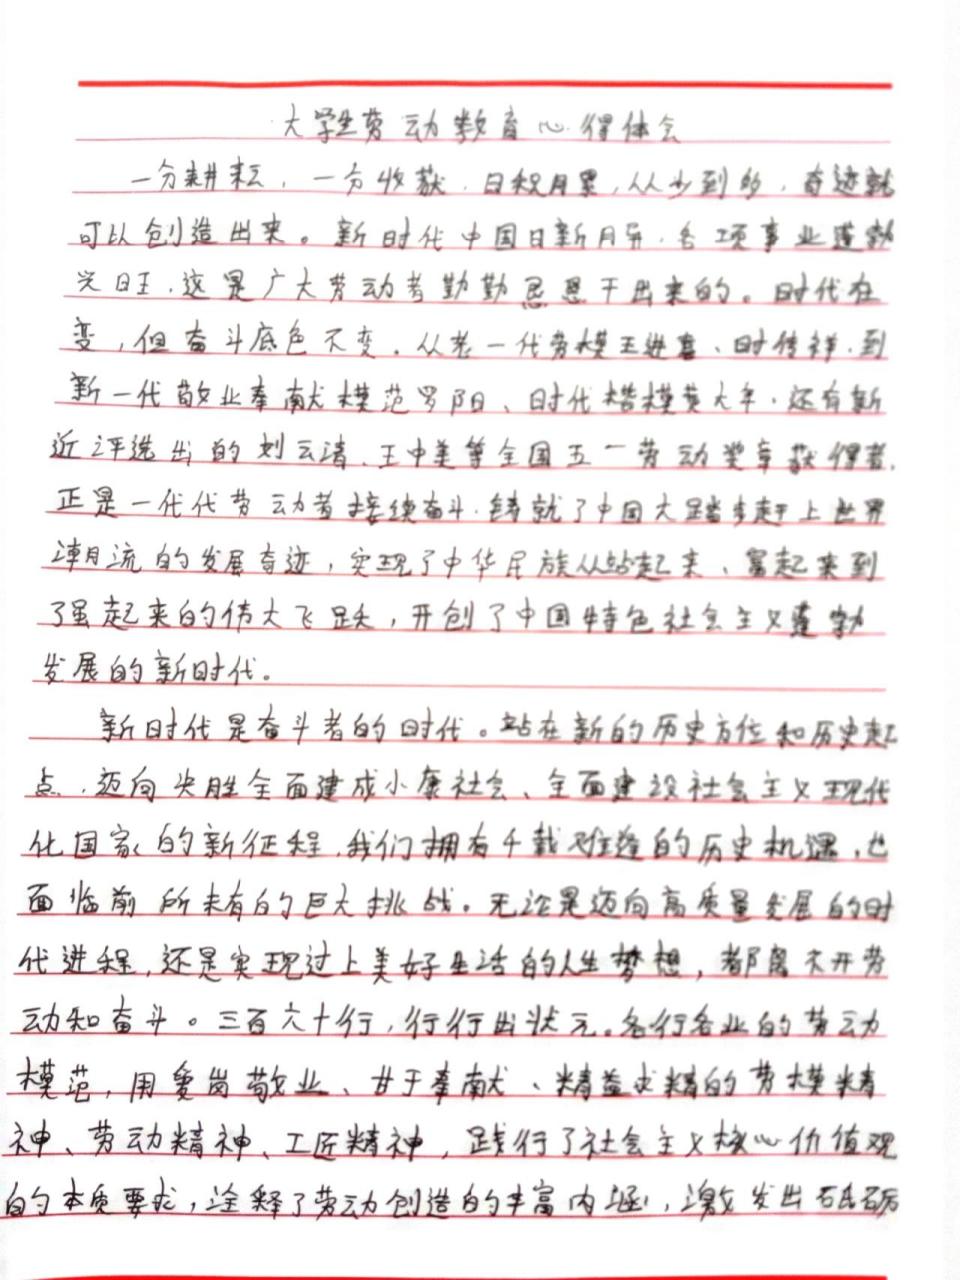 大学生劳动教育心得体会
一分耕耘，一分收获，日积月累，从少到多，奇迹就
可以创造出来。新时代中国日新月异，各项事业蓬勃
兴旺，这是广大劳动者勤勤恳恳干出来的。时代在
变，但奋斗底色不变，从老一代劳模王进喜、时传祥，到
新一代敬业奉献模范罗阳、时代楷模黄大年，还有新
近评选出的刘云清、王中美等全国五一劳动奖章获得者，
正是一代代劳动者接续奋斗，铸就了中国大踏步赶上世界
潮流的发展奇迹，实现了中华民族从站起来、富起来到
了强起来的伟大飞跃，开创了中国特色社会主义蓬勃
发展的新时代。
新时代是奋斗者的时代。站在新的历史方位和历史起
点，迈向决胜全面建成小康社会、全面建设社会主义现代
化国家的新征程，我们拥有千载难逢的历史机遇，也
面临前所未有的巨大挑战。无论是迈向高质量发展的时
代进程，还是实现过上美好生活的人生梦想，都离不开劳
动和奋斗。三百六十行，行行出状元。各行各业的劳动
模范，用爱岗敬业、甘于奉献、精益求精的劳模精
神、劳动精神、工匠精神，践行了社会主义核心价值观
的本质要求，诠释了劳动创造的丰富内涵，激发出砥砺